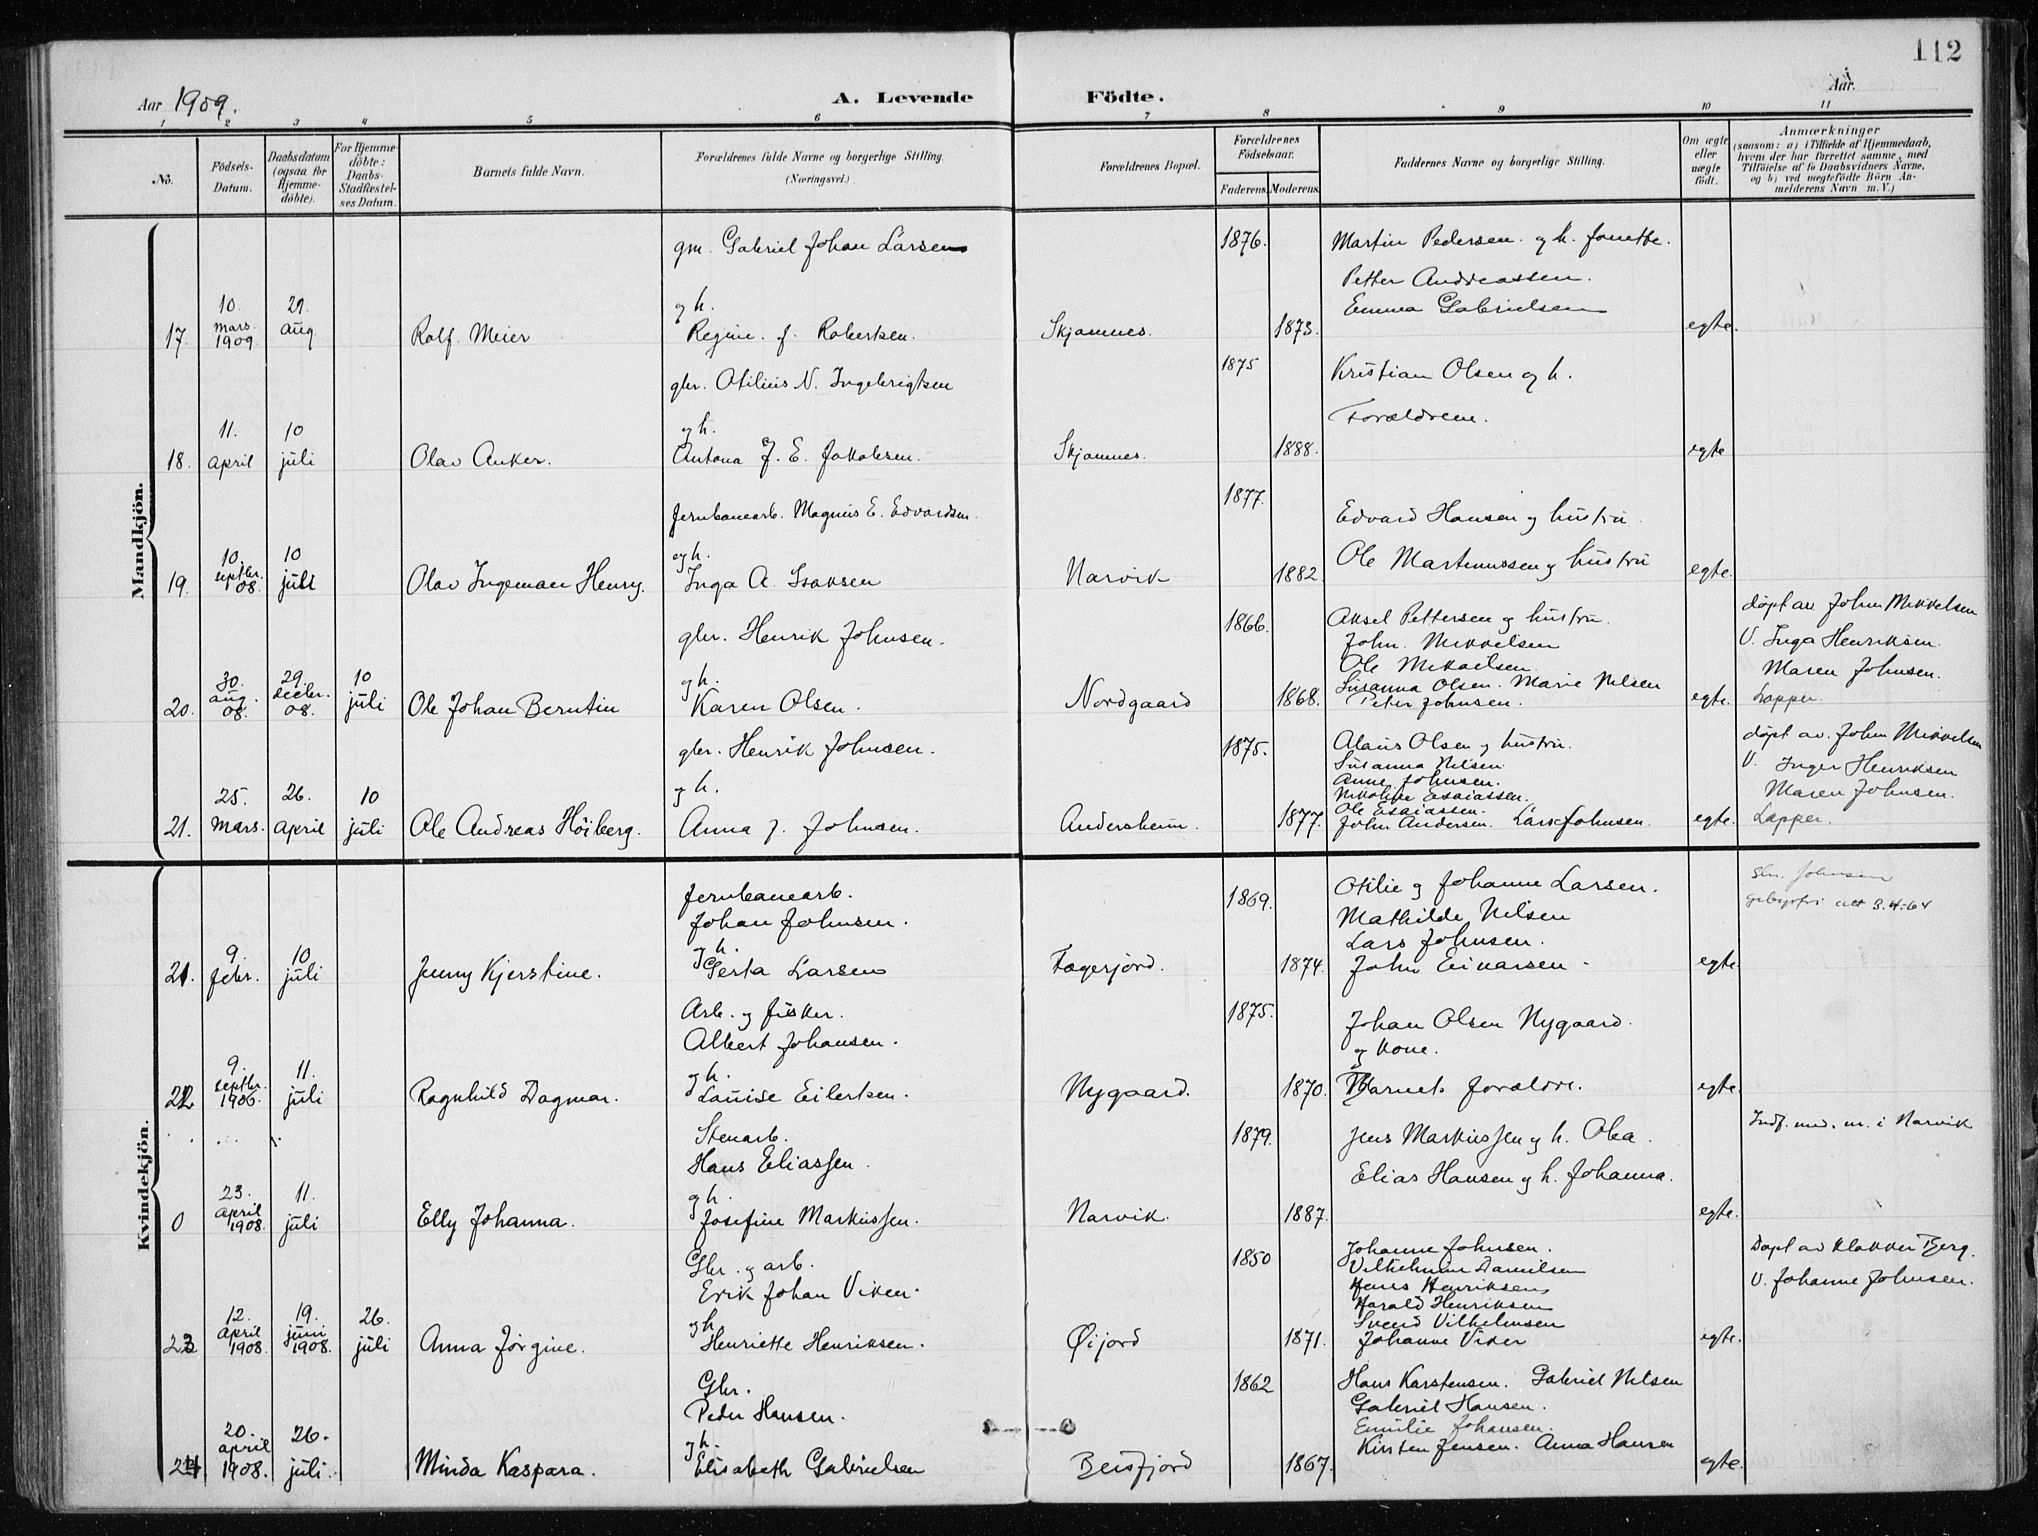 112
Aar 1909.
A. Levende Födte.
Aar.
1 2 3 4 5 6 7 8 9 10 11
No.
Födsels-Datum.
Daabsdatum (ogsaa for Hjemme-döbte).
For Hjemme-döbte: Daabs-Stadfæstel-ses Datum.
Barnets fulde Navn.
Forældrenes fulde Navne og borgerlige Stilling.
(Næringsvei.)
Forældrenes Bopæl.
Forældrenes Födselsaar.
Faderens. Moderens.
Faddernes Navne og borgerlige Stilling.
Om ægte eller uægte födt.
Anmærkninger
(saasom: a) i Tilfælde af Hjemmedaab,
hvem der har forrettet samme, med
Tilföielse af to Daabsvidners Navne,
og b) ved uegtefödte Börn An-
melderens Navn m. V.)
Mandkjön.
gm. Gabriel Johan Larsen
1876.
Martin Pedersen og h. Janette.
Petter Andreassen.
Emma Gabrielsen
17. 10. Mars. 1909 29. Aug Rolf Meier
og h.
Regine. f. Robertsen.
Skjomnes. 1873. egte.
gbr. Otilius N. Ingebrigtsen
1875
Kristian Olsen og h.
Forældrene.
18. 11. April 10 juli Olav Anker.
og h.
Antona J. E. Jakobsen.
Skjomnes. 1888. egte
Jernbanearb. Magnus E. Edvardsen.
1877.
Edvard Hansen og hustru.
Ole Martinussen og hustru
19. 10. septbr. 08. 10 juli Olav Ingeman Henry.
og h.
Inga A. Isaksen
Narvik 1882 egte.
gbr. Henrik Johnsen.
1866.
Aksel Pettersen og hustru.
John Mikkelsen
Ole Mikkelsen
Susanna Olsen. Marie Nilsen
Peter Johnsen.
20. 30. aug. 08. 29. decbr. 08. 10 juli Ole Johan Berntin
og h.
Karen Olsen.
Nordgaard 1868. egte.
døpt av John Mikkelsen
V. Inga Henriksen.
Maren Johnsen.
Lapper.
gbr. Henrik Johnsen.
1875.
Alaus Olsen og hustru.
Susanna Nilsen
Anne Johnsen.
Nikoline Esaiassen.
Ole Esaiassen.
John Andersen. Lars Johnsen.
21. 25. Mars. 26. April 10 juli Ole Andreas Höiberg.
og h.
Anna J. Johnsen.
Andersheim. 1877. egte.
døpt av. John Mikkelsen
V. Inger Henriksen
Maren Johnsen.
Lapper.
Kvindekjön.
Jernbanearb.
Johan Johnsen.
og h.
Gerta Larsen
1869.
Otilie og Johanne Larsen.
Mathilde Nilsen
Lars Johnsen.
John Einarsen.
21. 9. febr. 10 juli Jenny Kjerstine.
Fagerjord. 1874. egte.
Johnsen
3.4.-64
Arb. og fisker.
Albert Johansen.
og h.
Louise Eilertsen.
1875.
Johan Olsen Nygaard.
og kone.
Barnets forældre.
22. 9. septbr. 1906. 11. juli Ragnhild Dagmar.
Nygaard. 1870. egte.
Stenarb.
Hans Eliassen.
og h.
Josefine Markussen.
1879.
Jens Markussen og h. Olea.
Elias Hansen og h. Johanna.
0 23. April 1908. 11. juli Elly Johanna.
Narvik. 1887. egte.
Indf. med. nr. i Narvik
Gbr. og arb.
Erik Johan Viken.
og h.
Henriette Henriksen.
1850
Johanne Johnsen.
Vilhelmine Danielsen
Hans Henriksen
Harald Henriksen
Svend Vilhelmsen
Johanne Viken
23 12. April 1908. 19. juni 1908. 26. juli Anna Jörgine.
Øijord 1871. egte.
Døpt av Klokker Berg.
V. Johanne Johnsen.
Gbr.
Peder Hansen.
og h.
Elisabeth Gabrielsen
1862
Hans Karstensen. Gabriel Nilsen
Gabriel Hansen.
Emilie Johansen.
Kirsten Jensen. Anna Hansen
24 20. april 1908. 26. juli. Minda Kaspara.
Beisfjord 1867. egte.